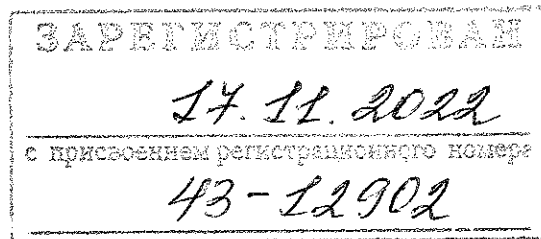 ЗАРЕГИСТРИРОВАН
17.11.2022
с присвоением регистрационного номера
43-12902